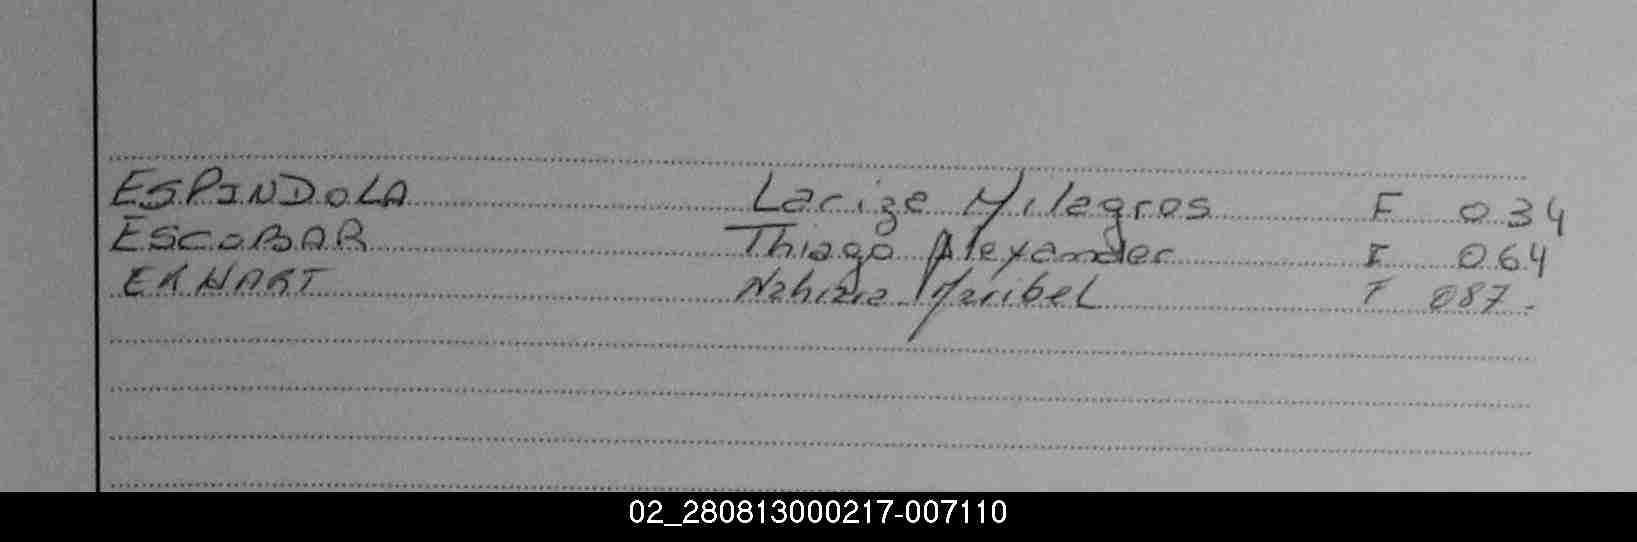 ESPINDOLA Larize Milagros F 034
ESCOBAR Thiago Alexander F 064
EKHART Maribel F 087.
02_280813000217-007110